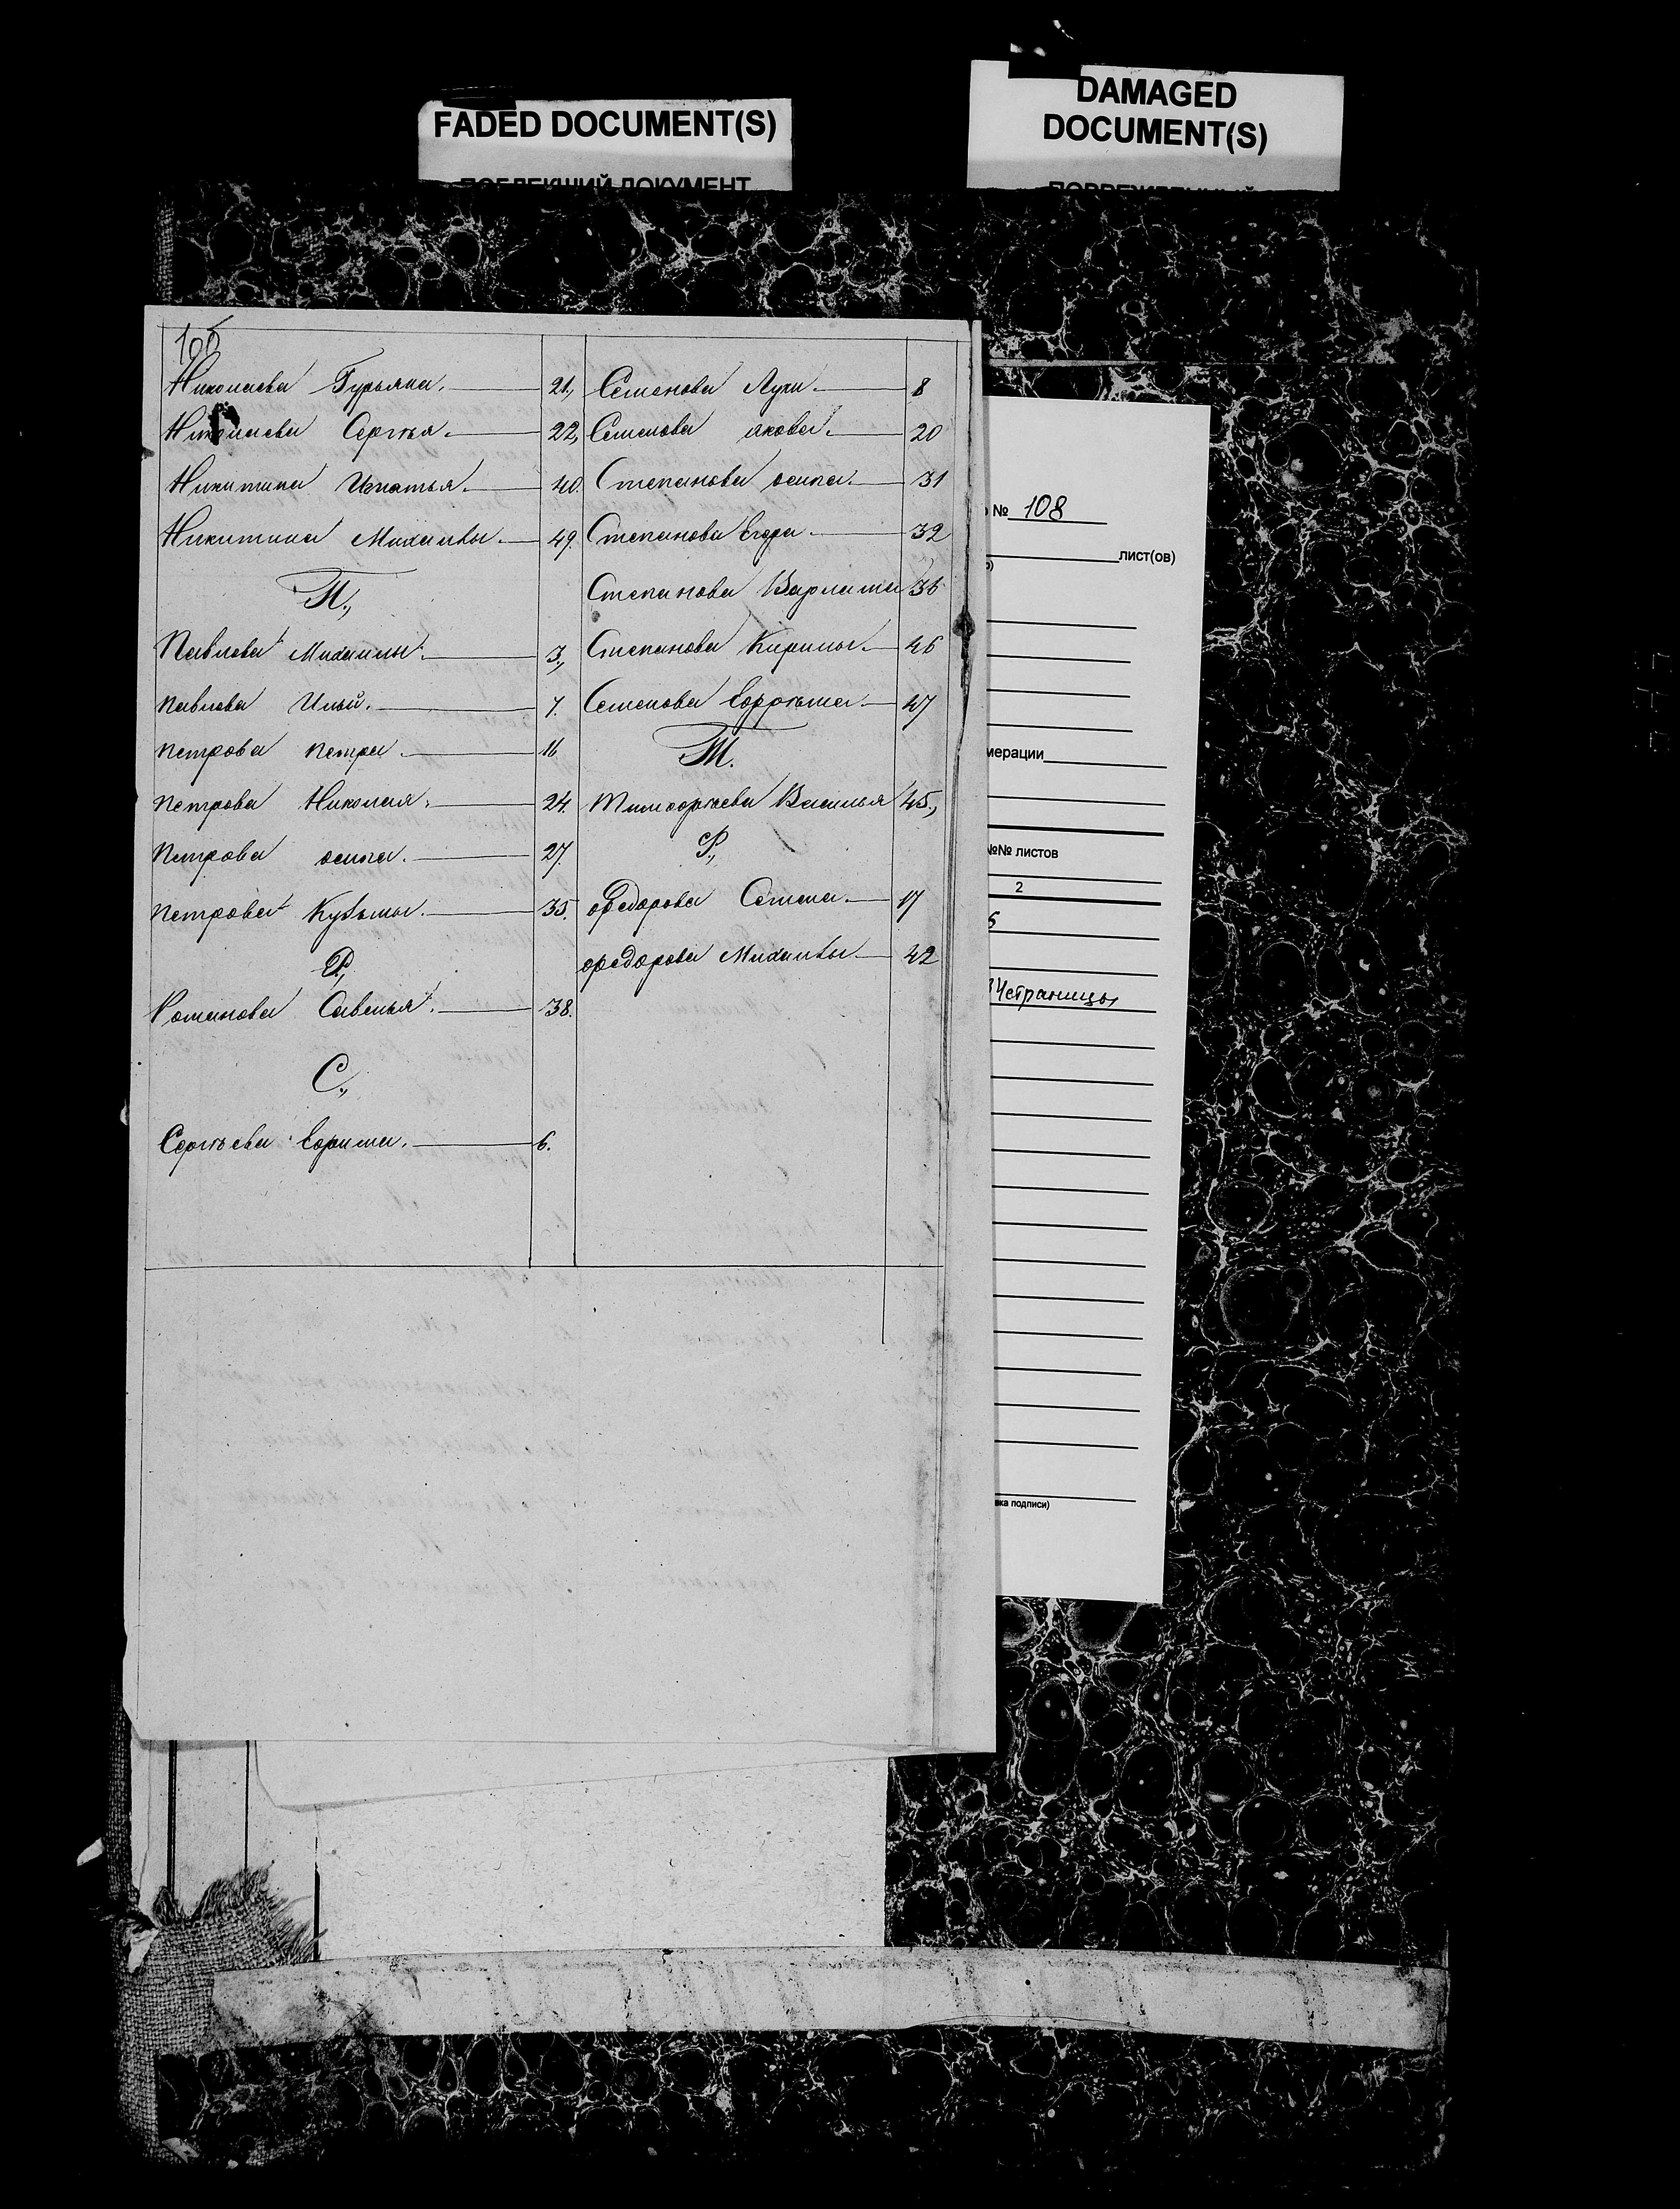 FADED DOCUMENT(S)
ПОБЛЕКШИЙ ДОКУМЕНТ
DAMAGED
DOCUMENT(S)
Николаева Гурьяна. 21.,
Николаева Сергѣя. 22,
Никитина Игнатья. 40.
Никитина Михаилы. 49.
П.,
Павлова Михаилы. 3.,
Павлова Ильи. 7.
Петрова Петра. 16
Петрова Николая. 24.
Петрова осипа. 27
Петрова Кузьмы. 35.
Р.,
Романова Савелья. 38.
С.,
Сергѣева Ефима. 6.
Семенова Луки. 8
Семенова якова. 20
Степанова осипа. 31
Степанова Егора. 32
Степанова Варлама 36
Степанова Кирилы. 46
Семенова Ефрѣма. 47
Т.
Тимофѣева Василья 45.,
Ф.,
Федорова Семена. 17
Федорова Михаилы. 42
№ 108
лист(ов)
мерации
№№ листов
2
5
страницы
вка подписи)